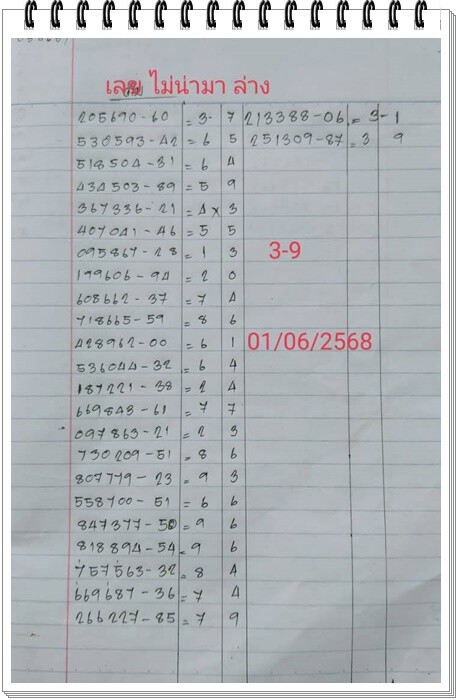 เลข ไม่น่ามา ล่าง
205690-60 = 3- 7 213388-06 = 3-1
530593-42 = 6 5 251309-87 = 3 9
518504-31 = 6 4
434503-89 = 5 9
367336-21 = 4 x 3
407041-46 = 5 5
095867-28 = 1 3
3-9
199606-94 = 2 0
608662-37 = 7 4
718665-59 = 8 6
428962-00 = 6 1
01/06/2568
536044-32 = 6 4
187221-38 = 2 4
669843-61 = 7 7
097863-21 = 2 3
730209-51 = 8 6
807779-23 = 9 3
558700-51 = 6 6
847377-50 = 9 6
818894-54 = 9 6
757563-32 = 8 4
669687-36 = 7 4
266227-85 = 7 9